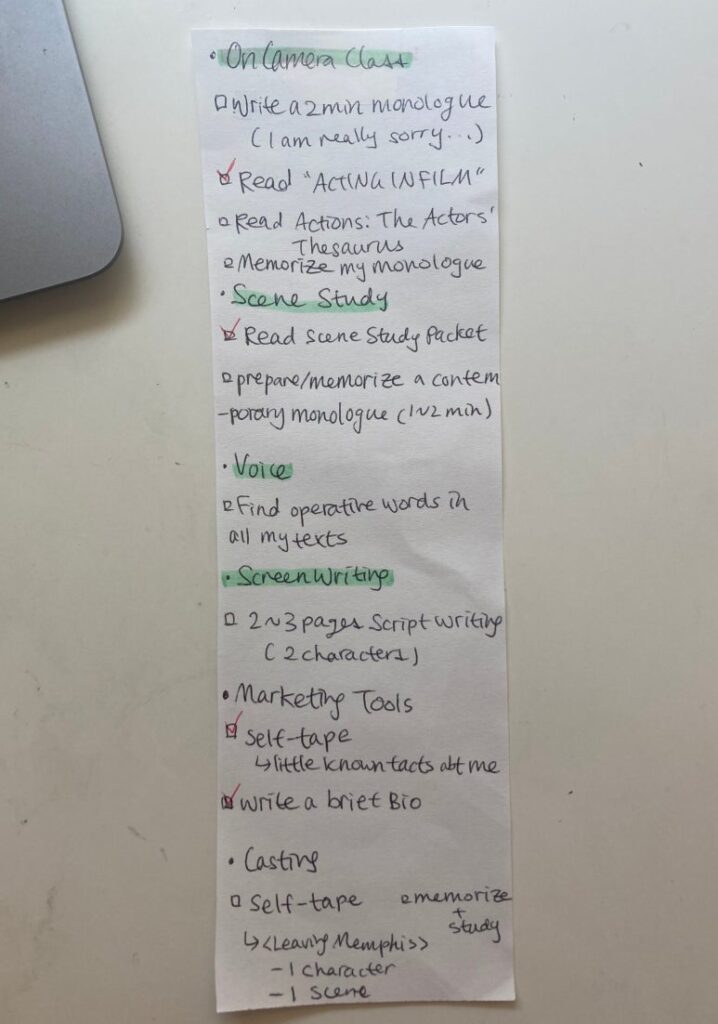 • On Camera Class
□ Write a 2min monologue
(I am really sorry...)
☑ Read "ACTING IN FILM"
□ Read Actions: The Actors'
Thesaurus
□ Memorize my monologue
• Scene Study
☑ Read Scene Study Packet
□ prepare/memorize a contem
-porary monologue (1~2 min)
• Voice
□ Find operative words in
all my texts
• Screen Writing
□ 2~3 pages Script Writing
(2 characters)
• Marketing Tools
☑ Self-tape
↳ little known facts abt me
☑ Write a brief Bio
• Casting
□ Self-tape □ memorize
+
study
↳ <Leaving Memphis>
- 1 character
- 1 scene